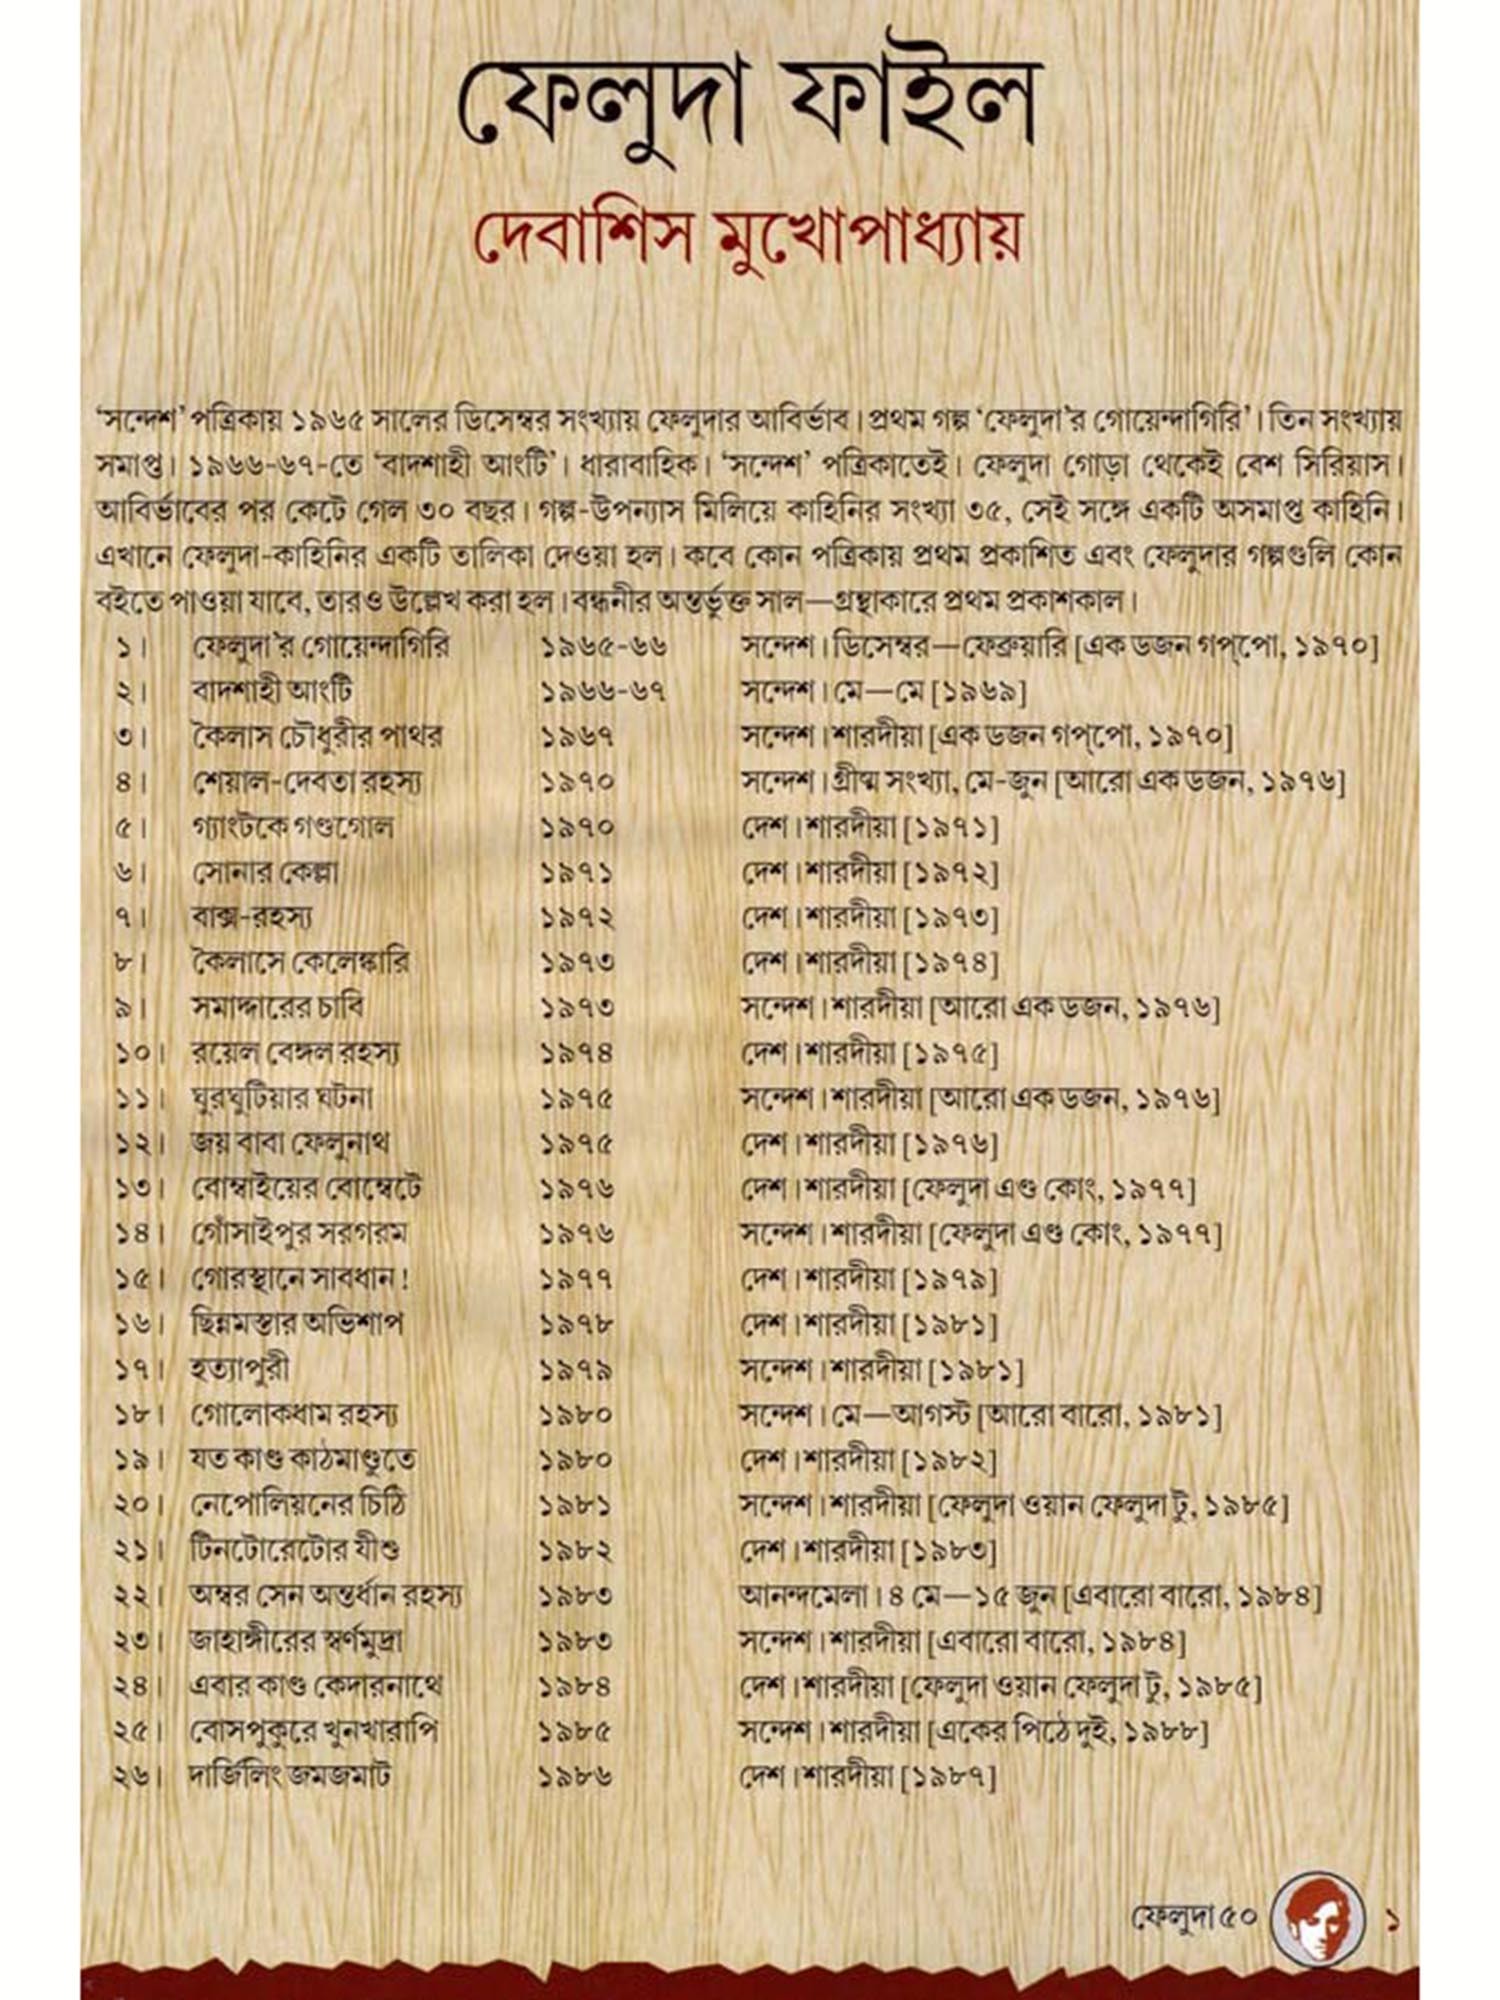 ফেলুদা ফাইল
দেবাশিস মুখোপাধ্যায়
‘সন্দেশ’ পত্রিকায় ১৯৬৫ সালের ডিসেম্বর সংখ্যায় ফেলুদার আবির্ভাব। প্রথম গল্প ‘ফেলুদা’র গোয়েন্দাগিরি’। তিন সংখ্যায়
সমাপ্ত। ১৯৬৬-৬৭-তে ‘বাদশাহী আংটি’। ধারাবাহিক। ‘সন্দেশ’ পত্রিকাতেই। ফেলুদা গোড়া থেকেই বেশ সিরিয়াস।
আবির্ভাবের পর কেটে গেল ৩০ বছর। গল্প-উপন্যাস মিলিয়ে কাহিনির সংখ্যা ৩৫, সেই সঙ্গে একটি অসমাপ্ত কাহিনি।
এখানে ফেলুদা-কাহিনির একটি তালিকা দেওয়া হল। কবে কোন পত্রিকায় প্রথম প্রকাশিত এবং ফেলুদার গল্পগুলি কোন
বইতে পাওয়া যাবে, তারও উল্লেখ করা হল। বন্ধনীর অন্তর্ভুক্ত সাল—গ্রন্থাকারে প্রথম প্রকাশকাল।
১। ফেলুদা’র গোয়েন্দাগিরি ১৯৬৫-৬৬ সন্দেশ। ডিসেম্বর—ফেব্রুয়ারি [এক ডজন গপ্‌পো, ১৯৭০]
২। বাদশাহী আংটি ১৯৬৬-৬৭ সন্দেশ। মে—মে [১৯৬৯]
৩। কৈলাস চৌধুরীর পাথর ১৯৬৭ সন্দেশ। শারদীয়া [এক ডজন গপ্‌পো, ১৯৭০]
৪। শেয়াল-দেবতা রহস্য ১৯৭০ সন্দেশ। গ্রীষ্ম সংখ্যা, মে-জুন [আরো এক ডজন, ১৯৭৬]
৫। গ্যাংটকে গণ্ডগোল ১৯৭০ দেশ। শারদীয়া [১৯৭১]
৬। সোনার কেল্লা ১৯৭১ দেশ। শারদীয়া [১৯৭২]
৭। বাক্স-রহস্য ১৯৭২ দেশ। শারদীয়া [১৯৭৩]
৮। কৈলাসে কেলেঙ্কারি ১৯৭৩ দেশ। শারদীয়া [১৯৭৪]
৯। সমাদ্দারের চাবি ১৯৭৩ সন্দেশ। শারদীয়া [আরো এক ডজন, ১৯৭৬]
১০। রয়েল বেঙ্গল রহস্য ১৯৭৪ দেশ। শারদীয়া [১৯৭৫]
১১। ঘুরঘুটিয়ার ঘটনা ১৯৭৫ সন্দেশ। শারদীয়া [আরো এক ডজন, ১৯৭৬]
১২। জয় বাবা ফেলুনাথ ১৯৭৫ দেশ। শারদীয়া [১৯৭৬]
১৩। বোম্বাইয়ের বোম্বেটে ১৯৭৬ দেশ। শারদীয়া [ফেলুদা এণ্ড কোং, ১৯৭৭]
১৪। গোঁসাইপুর সরগরম ১৯৭৬ সন্দেশ। শারদীয়া [ফেলুদা এণ্ড কোং, ১৯৭৭]
১৫। গোরস্থানে সাবধান! ১৯৭৭ দেশ। শারদীয়া [১৯৭৯]
১৬। ছিন্নমস্তার অভিশাপ ১৯৭৮ দেশ। শারদীয়া [১৯৮১]
১৭। হত্যাপুরী ১৯৭৯ সন্দেশ। শারদীয়া [১৯৮১]
১৮। গোলোকধাম রহস্য ১৯৮০ সন্দেশ। মে—আগস্ট [আরো বারো, ১৯৮১]
১৯। যত কাণ্ড কাঠমাণ্ডুতে ১৯৮০ দেশ। শারদীয়া [১৯৮২]
২০। নেপোলিয়নের চিঠি ১৯৮১ সন্দেশ। শারদীয়া [ফেলুদা ওয়ান ফেলুদা টু, ১৯৮৫]
২১। টিনটোরেটোর যীশু ১৯৮২ দেশ। শারদীয়া [১৯৮৩]
২২। অম্বর সেন অন্তর্ধান রহস্য ১৯৮৩ আনন্দমেলা। ৪ মে—১৫ জুন [এবারো বারো, ১৯৮৪]
২৩। জাহাঙ্গীরের স্বর্ণমুদ্রা ১৯৮৩ সন্দেশ। শারদীয়া [এবারো বারো, ১৯৮৪]
২৪। এবার কাণ্ড কেদারনাথে ১৯৮৪ দেশ। শারদীয়া [ফেলুদা ওয়ান ফেলুদা টু, ১৯৮৫]
২৫। বোসপুকুরে খুনখারাপি ১৯৮৫ সন্দেশ। শারদীয়া [একের পিঠে দুই, ১৯৮৮]
২৬। দার্জিলিং জমজমাট ১৯৮৬ দেশ। শারদীয়া [১৯৮৭]
ফেলুদা ৫০ ১